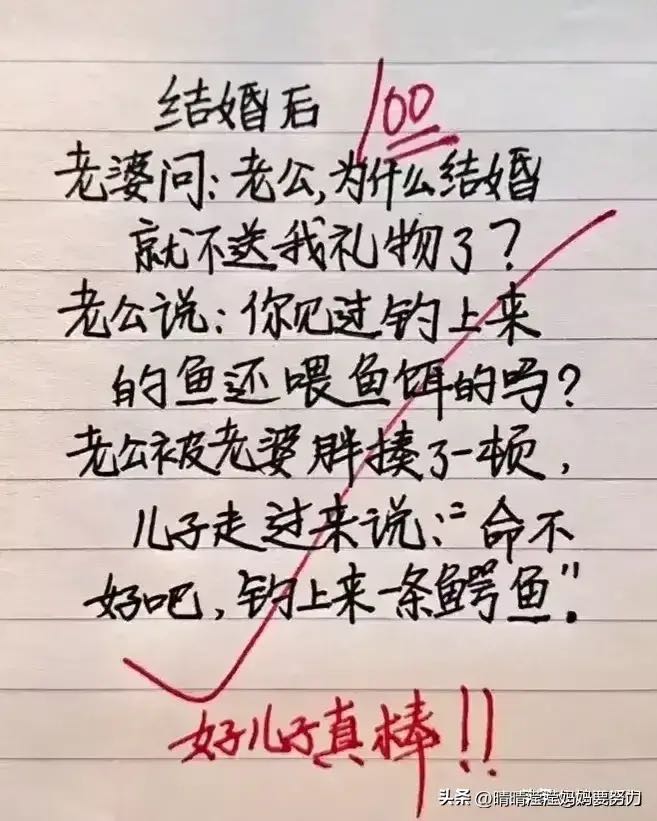 结婚后 100
老婆问:老公,为什么结婚
就不送我礼物了?
老公说:你见过钓上来
的鱼还喂鱼饵的吗?
老公被老婆胖揍了一顿,
儿子走过来说:“命不
好吧,钓上来一条鳄鱼”.
好儿子真棒!!
头条 @晴晴滢滢妈妈要努力